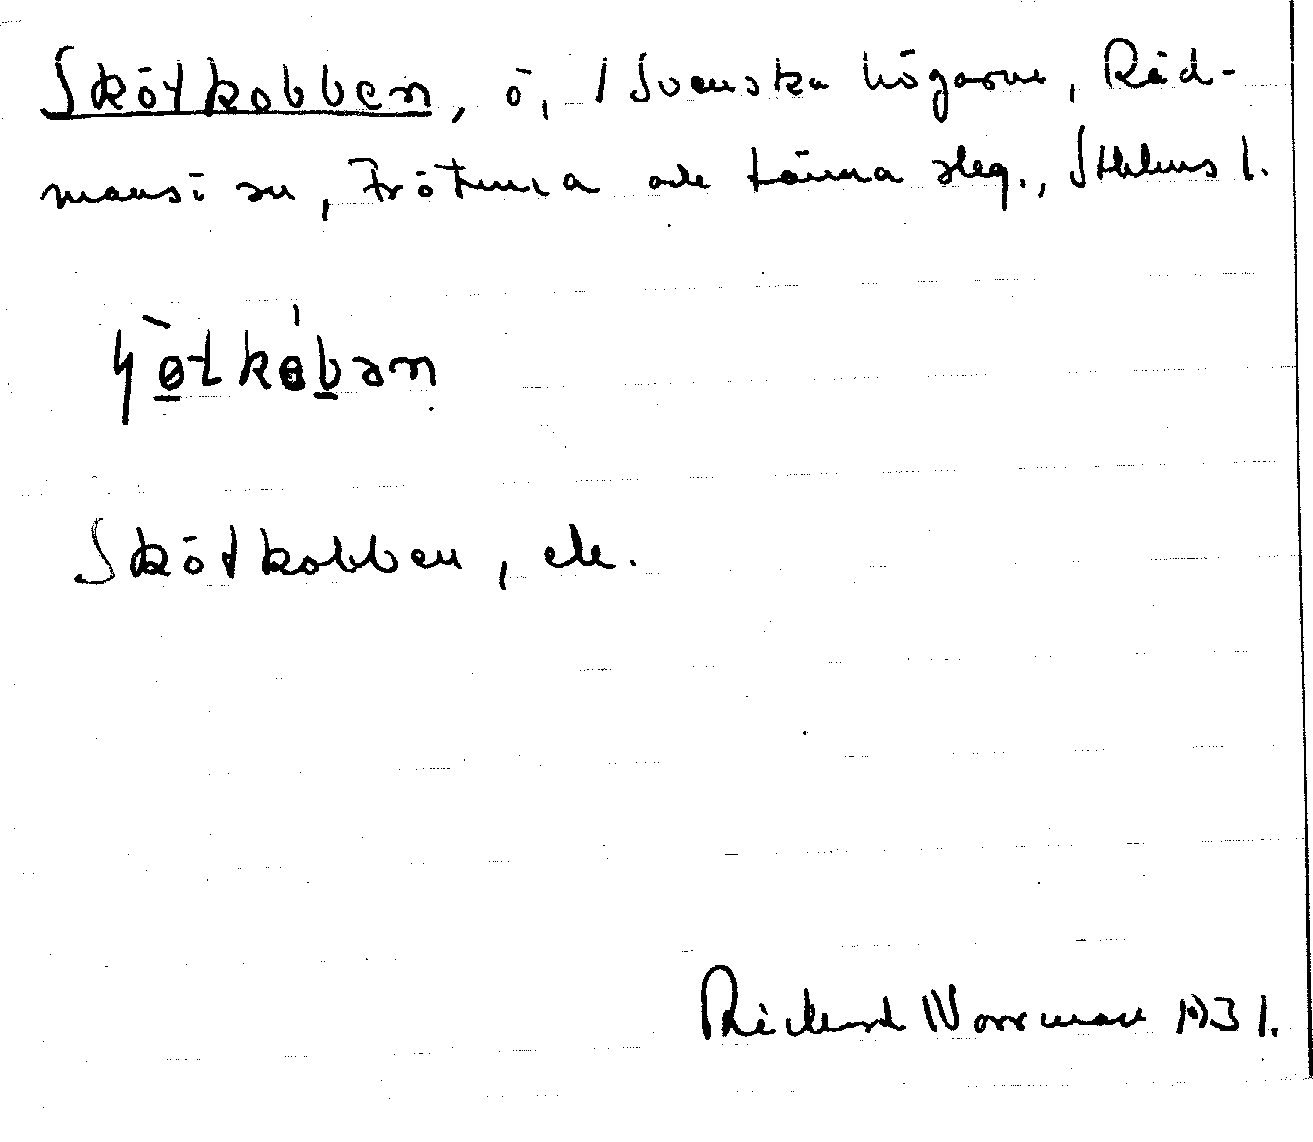 Skötkobben, ö, i Svenska högarna, Råd-
mansö sn, Frötuna och Länna slg., Sthlms l.
Skötkobben, ele.
Richard Norrman 1931.